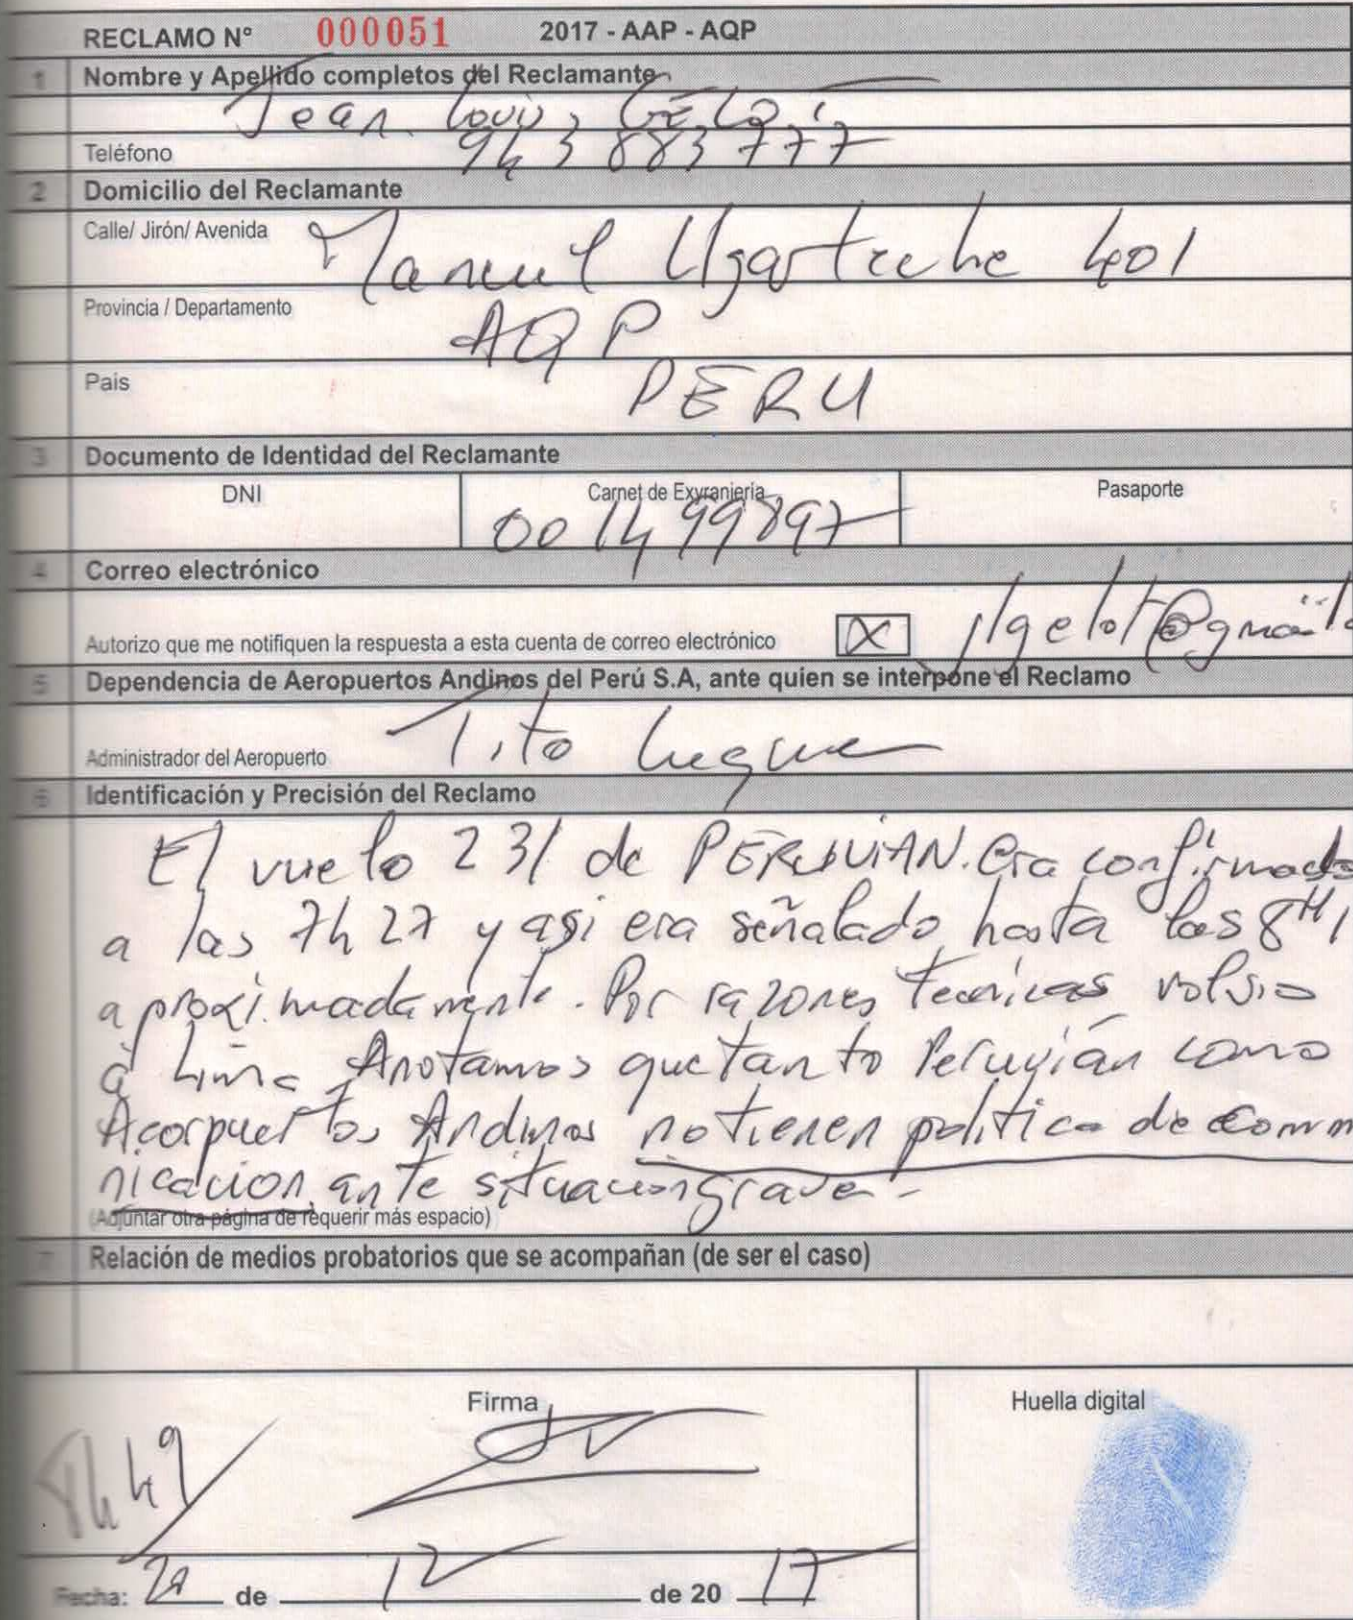 RECLAMO N° 000051 2017 - AAP - AQP
1 Nombre y Apellido completos del Reclamante
Jean Louis GELOT
Teléfono 943 883 777
2 Domicilio del Reclamante
Calle/ Jirón/ Avenida Manuel Ugarteche 401
Provincia / Departamento AQP
Pais PERU
3 Documento de Identidad del Reclamante
DNI Carnet de Exyranjeria Pasaporte
001499897
4 Correo electrónico
Autorizo que me notifiquen la respuesta a esta cuenta de correo electrónico X jlgelot@gmail
5 Dependencia de Aeropuertos Andinos del Perú S.A, ante quien se interpone el Reclamo
Administrador del Aeropuerto Tito
6 Identificación y Precisión del Reclamo
El vuelo 231 de PERUVIAN. era confirmado
a las 7h27 y asi era señalado hasta las 8H
aproximadamente. Por razones tecnicas volvio
a Lima Anotamos que tanto Peruvian como
Aeorpuertos Andinos no tienen politica de comm
nicacion ante situacion grave -
(Adjuntar otra página de requerir más espacio)
7 Relación de medios probatorios que se acompañan (de ser el caso)
Firma Huella digital
8h49
Fecha: de 12 de 20 17